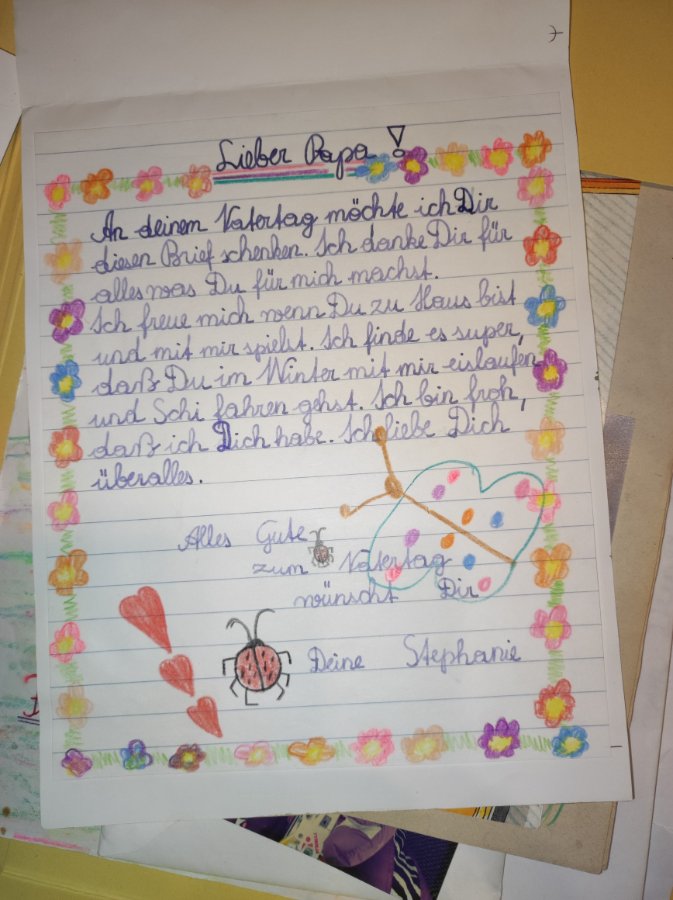 Lieber Papa!
An deinem Vatertag möchte ich Dir
diesen Brief schenken. Ich danke Dir für
alles was Du für mich machst.
Ich freue mich wenn Du zu Haus bist
und mit mir spielst. Ich finde es super,
daß Du im Winter mit mir eislaufen
und Schi fahren gehst. Ich bin froh,
daß ich Dich habe. Ich liebe Dich
überalles.
Alles Gute
zum Vatertag
wünscht Dir
Deine Stephanie